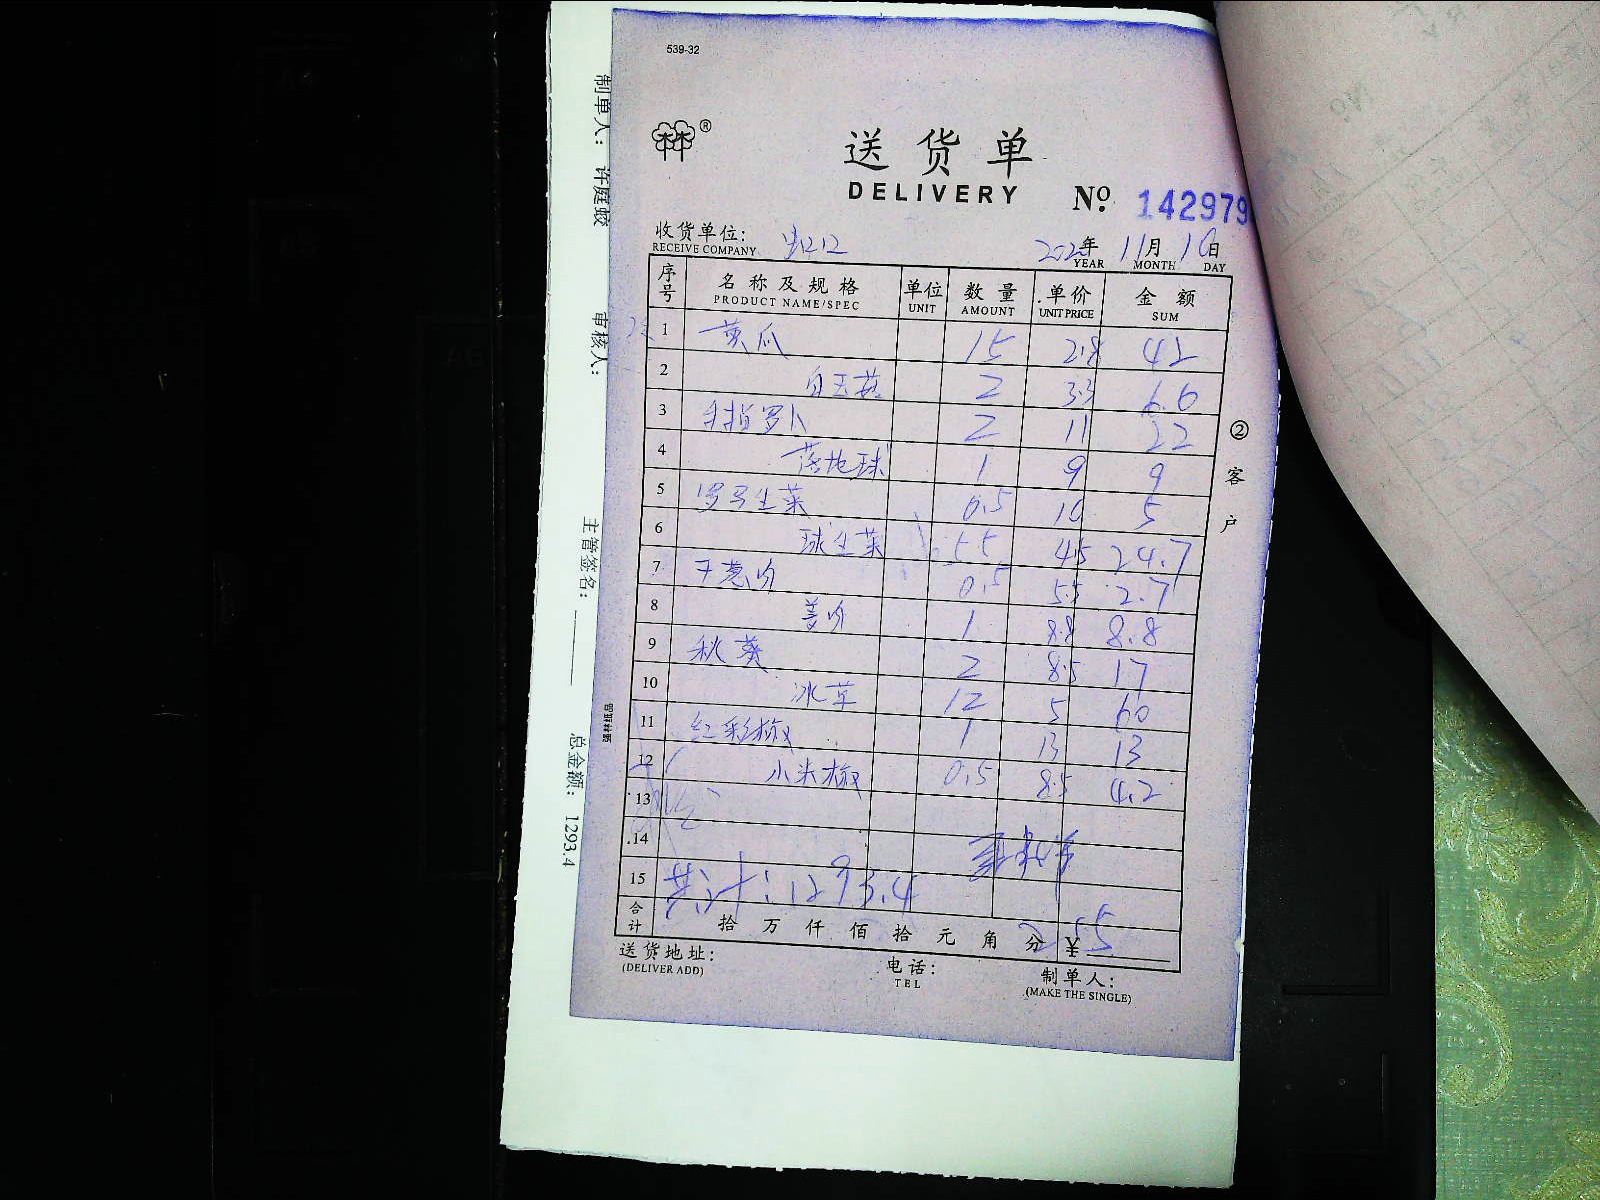 539-32
®
送货单
DELIVERY
No. 142979
收货单位:
RECEIVE COMPANY
年 11月 10日
YEAR MONTH DAY
序号 名称及规格 单位 数量 单价 金额
PRODUCT NAME/SPEC UNIT AMOUNT UNIT PRICE SUM
1 黄瓜 15 2.8 42
2 白玉菇 2 3.3 6.6
3 手指罗卜 2 11 22
4 落地球 1 9 9
5 罗马生菜 0.5 10 5
6 球生菜 5.5 4.5 24.7
7 干葱 0.5 5.5 2.7
8 1 8.8 8.8
9 秋葵 2 8.5 17
10 冰草 12 5 60
11 红彩椒 1 13 13
12 小米椒 0.5 8.5 4.2
13
14
15 共计:1293.4
合计 拾 万 仟 佰 拾 元 角 分 ¥
送货地址:
(DELIVER ADD)
电话:
TEL
制单人:
(MAKE THE SINGLE)
②客户
强林纸品
制单人: 许庭蛟
审核人:
主管签名:
总金额: 1293.4